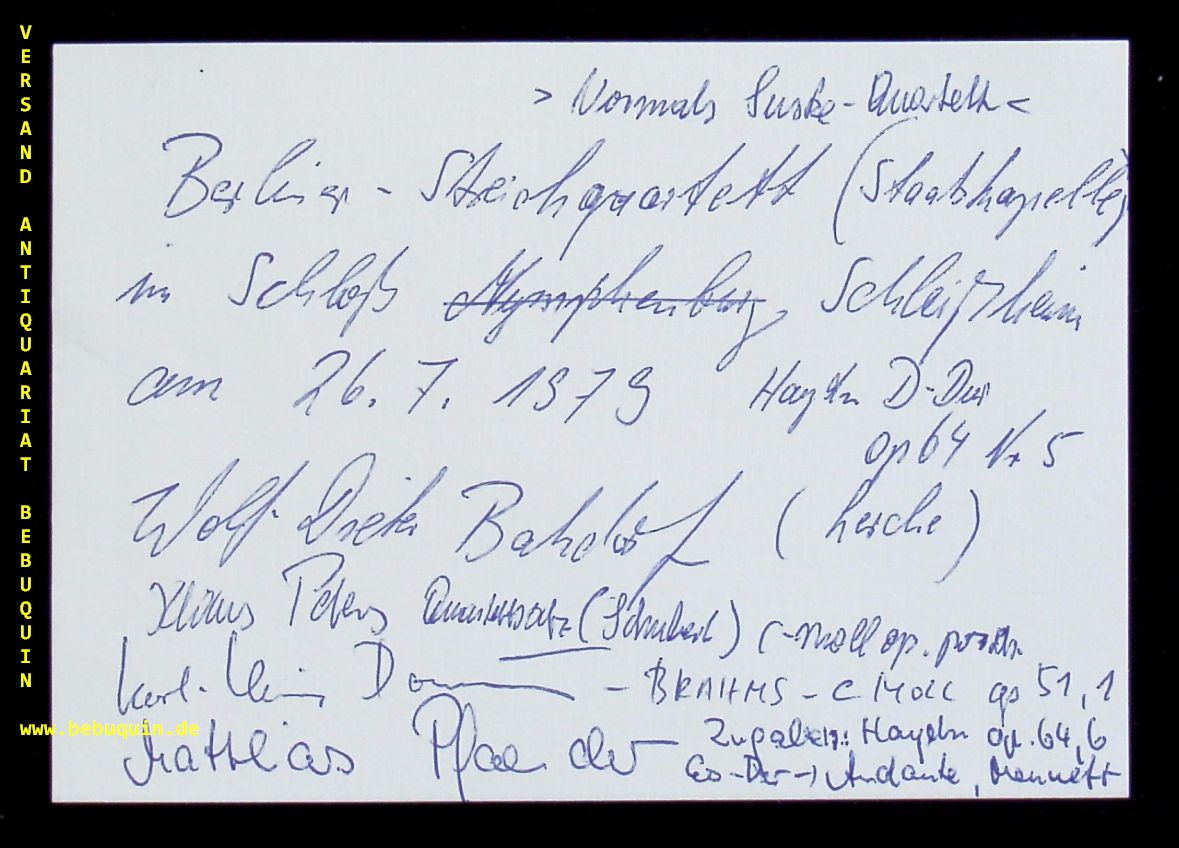 VERSAND ANTIQUARIAT BEBUQUIN
> Vormals Suske-Quartett <
Berliner - Streichquartett (Staatskapelle)
im Schloß Nymphenburg, Schleißheim
am 26. 7. 1979 Haydn D-Dur
op 64 Nr 5
Wolf-Dieter Batzdorf (Lerche)
Klaus Peters Quartettsatz (Schubert) c-moll op. posth.
Karl-Heinz Dommus - BRAHMS - c Moll op 51, 1
www.bebuquin.de
Matthias Pfaender Zugaben: Haydn op. 64,6
Es-Dur -> Andante, Menuett